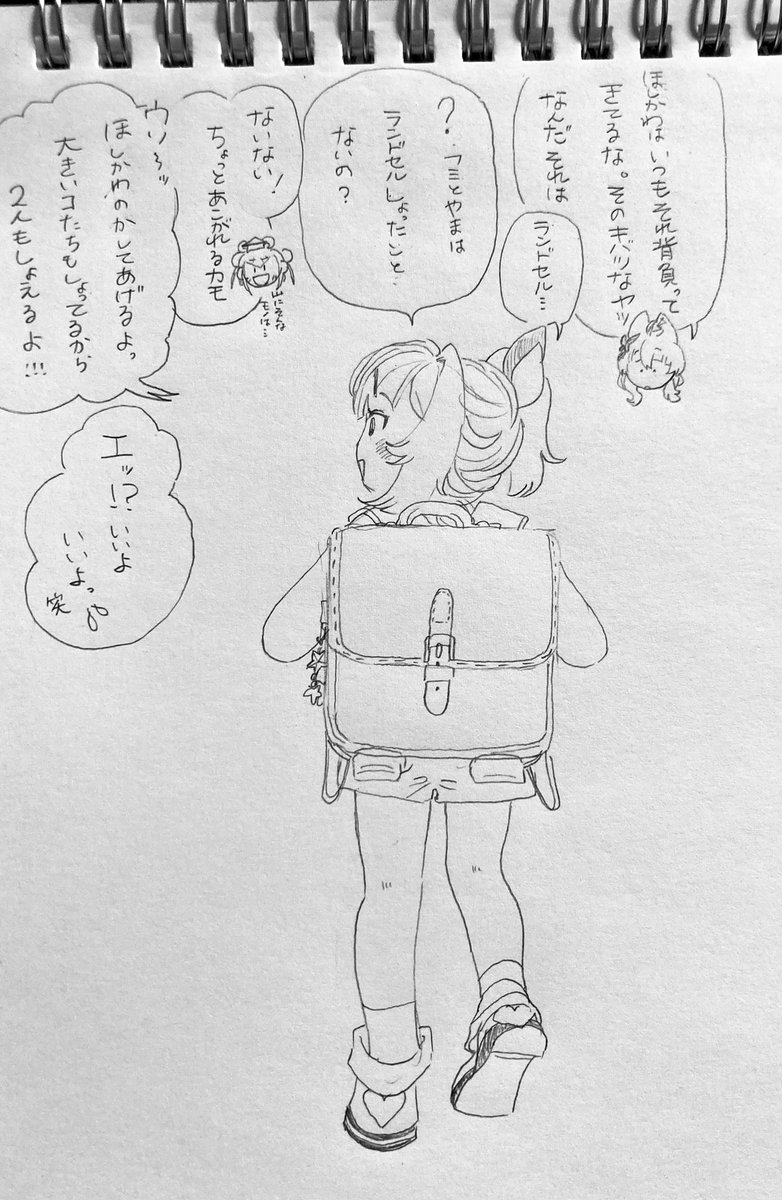 ほしかわはいつもそれ背負って
きてるな。そのキバツなヤツ
なんだそれは
ランドセル…
?フミとやまは
ランドセルしょったこと…
ないの?
ないない!
ちょっとあこがれるカモ
山にそんな
モノは…
ウソ〜ッ
ほしかわのかしてあげるよっ
大きいコたちもしょってるから
2人もしょえるよ!!!
エッ!?いいよ
いいよっ
笑